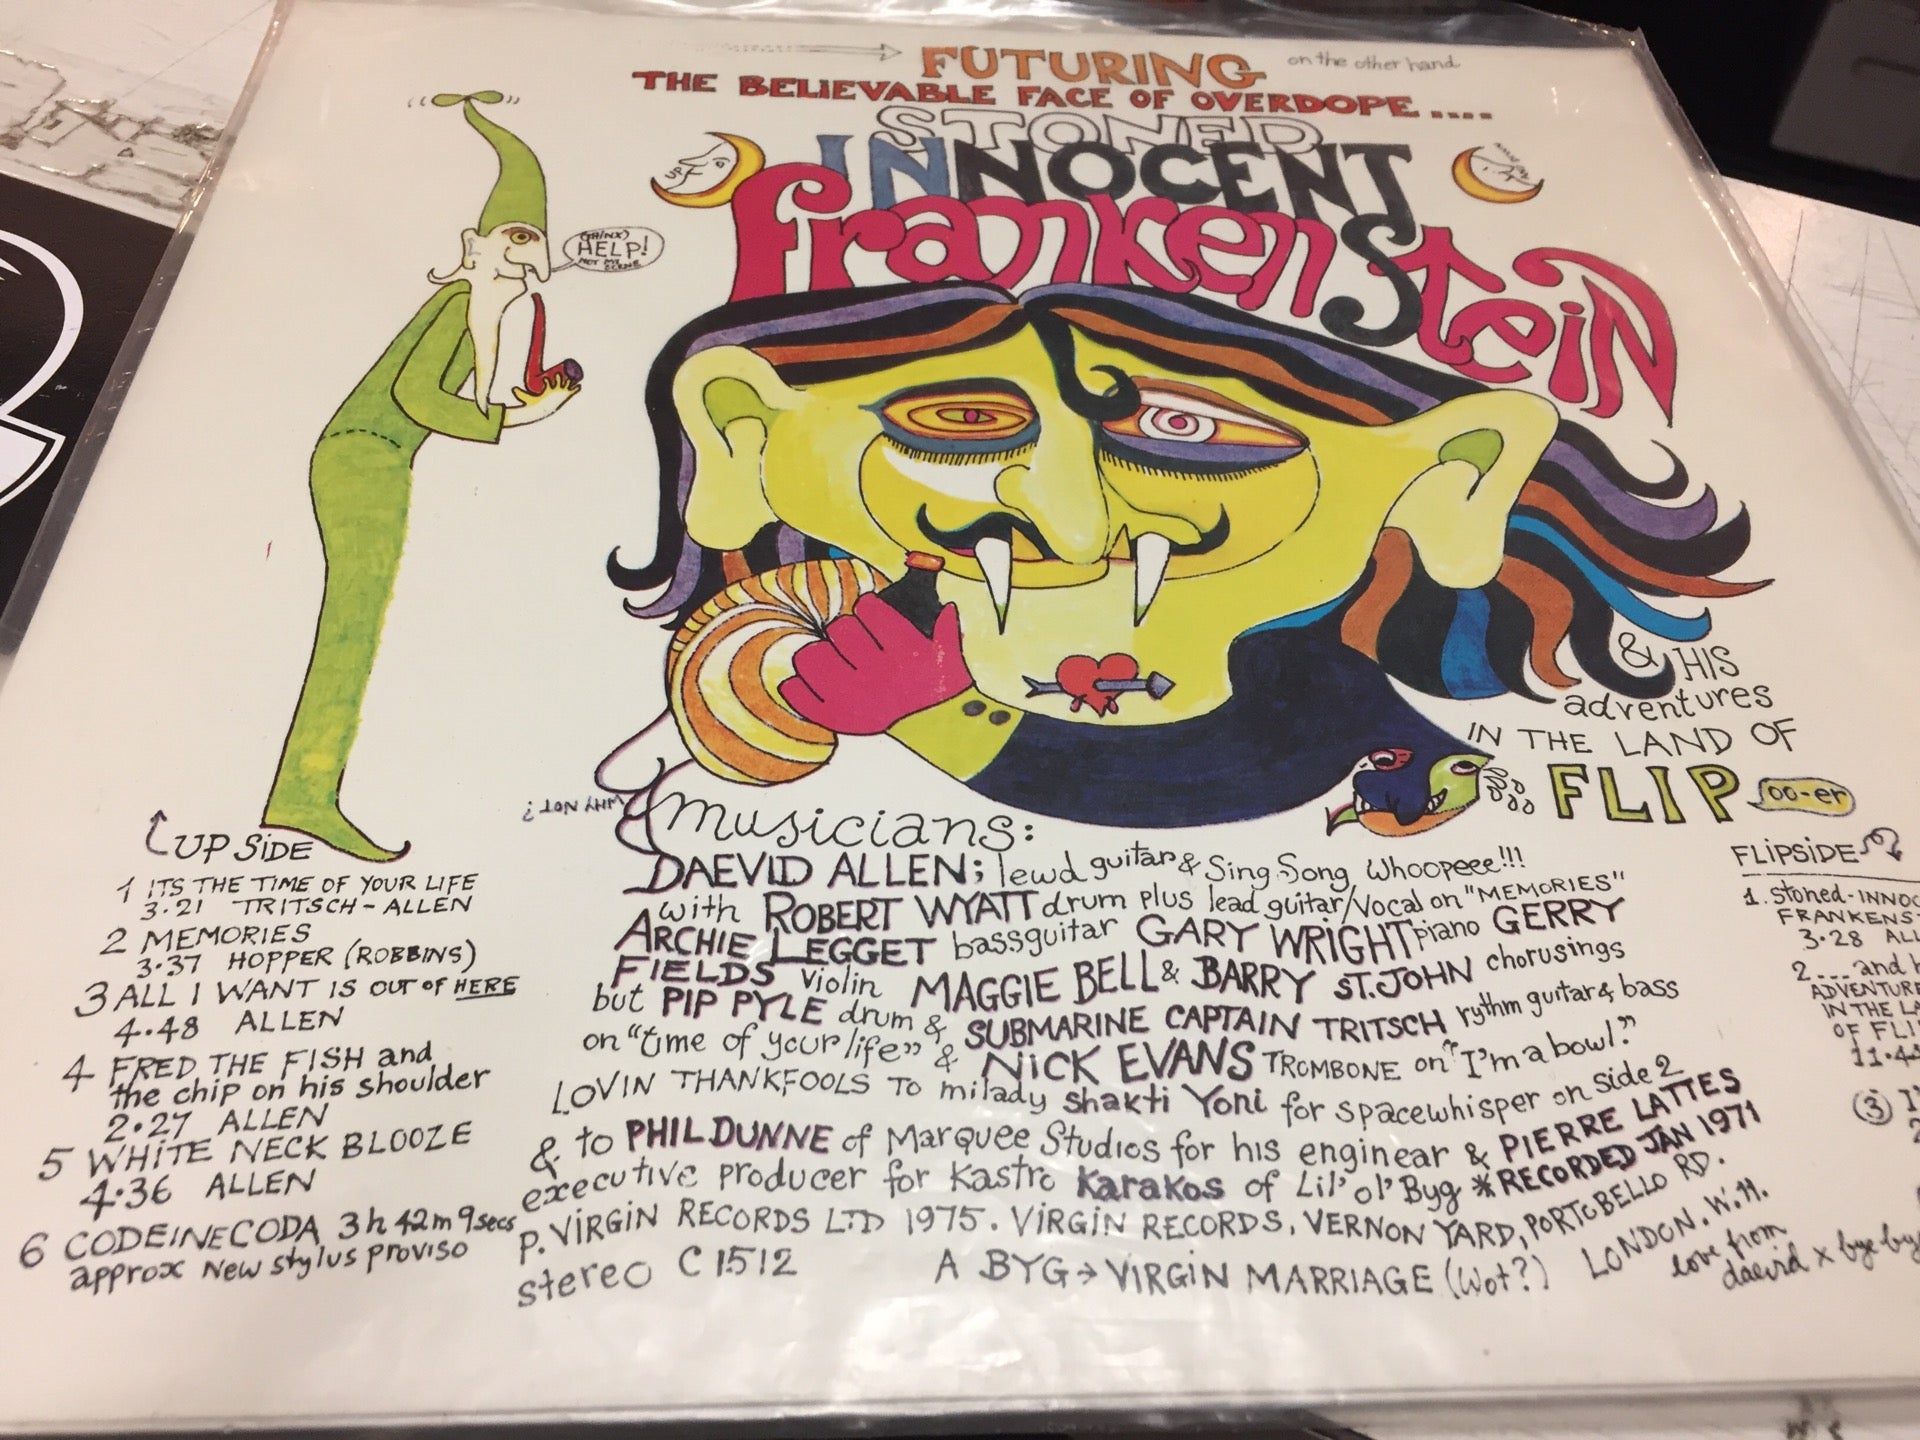 FUTURING
on the other hand
THE BELIEVABLE FACE OF OVERDOPE....
STONED
INNOCENT
frankenStein
UP
HELP!
& HIS
adventures
IN THE LAND OF
FLIP oo-er
WHY NOT?
UP SIDE
1 ITS THE TIME OF YOUR LIFE
3.21 TRITSCH-ALLEN
2 MEMORIES
3.37 HOPPER (ROBBINS)
3 ALL I WANT IS OUT OF HERE
4.48 ALLEN
4 FRED THE FISH and
the chip on his shoulder
2.27 ALLEN
5 WHITE NECK BLOOZE
4.36 ALLEN
6 CODEINE CODA 3h 42m 9secs
approx New stylus proviso
musicians:
DAEVID ALLEN; lewd guitar & Sing Song Whoopeee!!!
with ROBERT WYATT drum plus lead guitar/Vocal on "MEMORIES"
ARCHIE LEGGET bassguitar GARY WRIGHT piano GERRY
FIELDS violin MAGGIE BELL & BARRY ST.JOHN chorusings
but PIP PYLE drum & SUBMARINE CAPTAIN TRITSCH rythm guitar & bass
on "time of your life" & NICK EVANS TROMBONE on "I'm a bowl."
LOVIN THANKFOOLS TO milady Shakti Yoni for spacewhisper on side 2
& to PHIL DUNNE of Marquee Studios for his enginear & PIERRE LATTES
executive producer for Kastro Karakos of Lil' ol' Byg * RECORDED JAN 1971
P. VIRGIN RECORDS LTD 1975. VIRGIN RECORDS, VERNON YARD, PORTOBELLO RD.
LONDON. W.11.
stereo C1512 A BYG → VIRGIN MARRIAGE (Wot?)
love from
daevid x bye bye
FLIPSIDE
1. Stoned-INNOC
FRANKENST
3.28 ALL
2 ...and h
ADVENTURE
IN THE LA
OF FLI
11.4
3